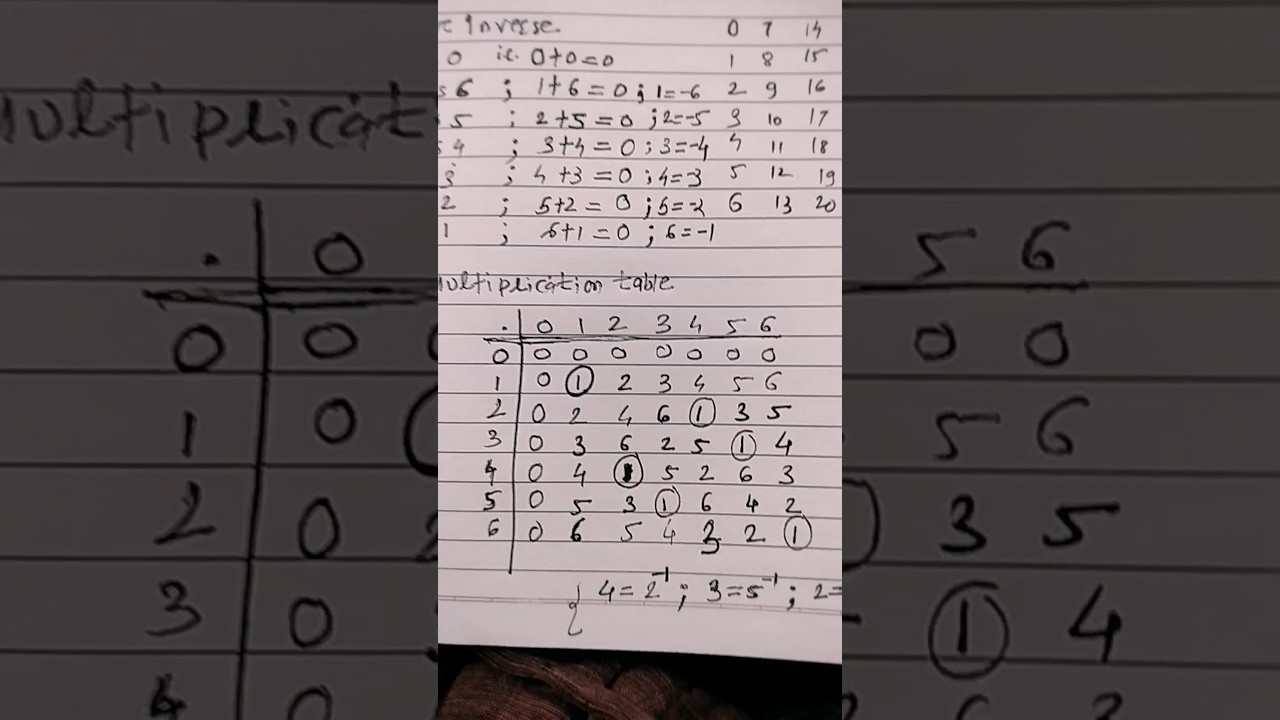 Inverse 0 7 14
0 i.e. 0+0=0 1 8 15
6 ; 1+6=0 ; 1=-6 2 9 16
5 ; 2+5=0 ; 2=-5 3 10 17
4 ; 3+4=0 ; 3=-4 4 11 18
3 ; 4+3=0 ; 4=-3 5 12 19
2 ; 5+2=0 ; 5=-2 6 13 20
1 ; 6+1=0 ; 6=-1
ultiplication table
. 0 1 2 3 4 5 6
0 0 0 0 0 0 0 0
1 0 1 2 3 4 5 6
2 0 2 4 6 1 3 5
3 0 3 6 2 5 1 4
4 0 4 1 5 2 6 3
5 0 5 3 1 6 4 2
6 0 6 5 4 3 2 1
{ 4=2⁻¹ ; 3=5⁻¹ ; 2=